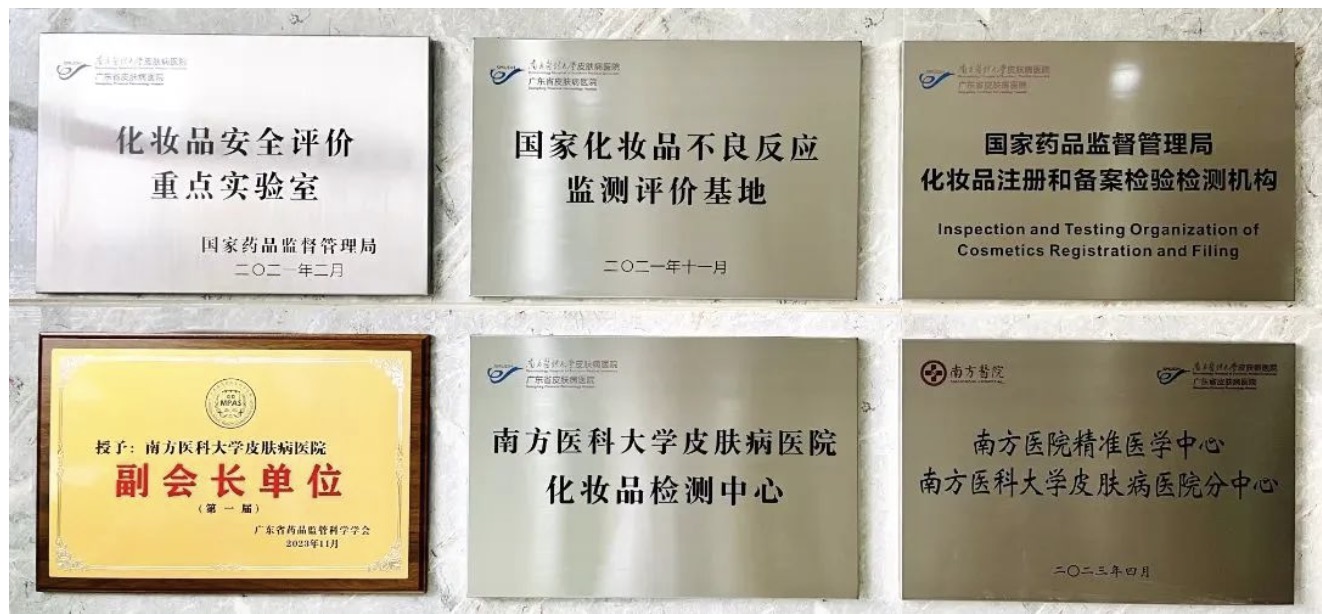 南方医科大学皮肤病医院
广东省皮肤病医院
化妆品安全评价
重点实验室
国家药品监督管理局
二〇二一年二月
南方医科大学皮肤病医院
广东省皮肤病医院
国家化妆品不良反应
监测评价基地
二〇二一年十一月
南方医科大学皮肤病医院
广东省皮肤病医院
国家药品监督管理局
化妆品注册和备案检验检测机构
Inspection and Testing Organization of
Cosmetics Registration and Filing
MPAS
授予：南方医科大学皮肤病医院
副会长单位
（第一届）
广东省药品监管科学学会
2023年11月
南方医科大学皮肤病医院
广东省皮肤病医院
南方医科大学皮肤病医院
化妆品检测中心
南方醫院
南方医科大学皮肤病医院
广东省皮肤病医院
南方医院精准医学中心
南方医科大学皮肤病医院分中心
二〇二三年四月